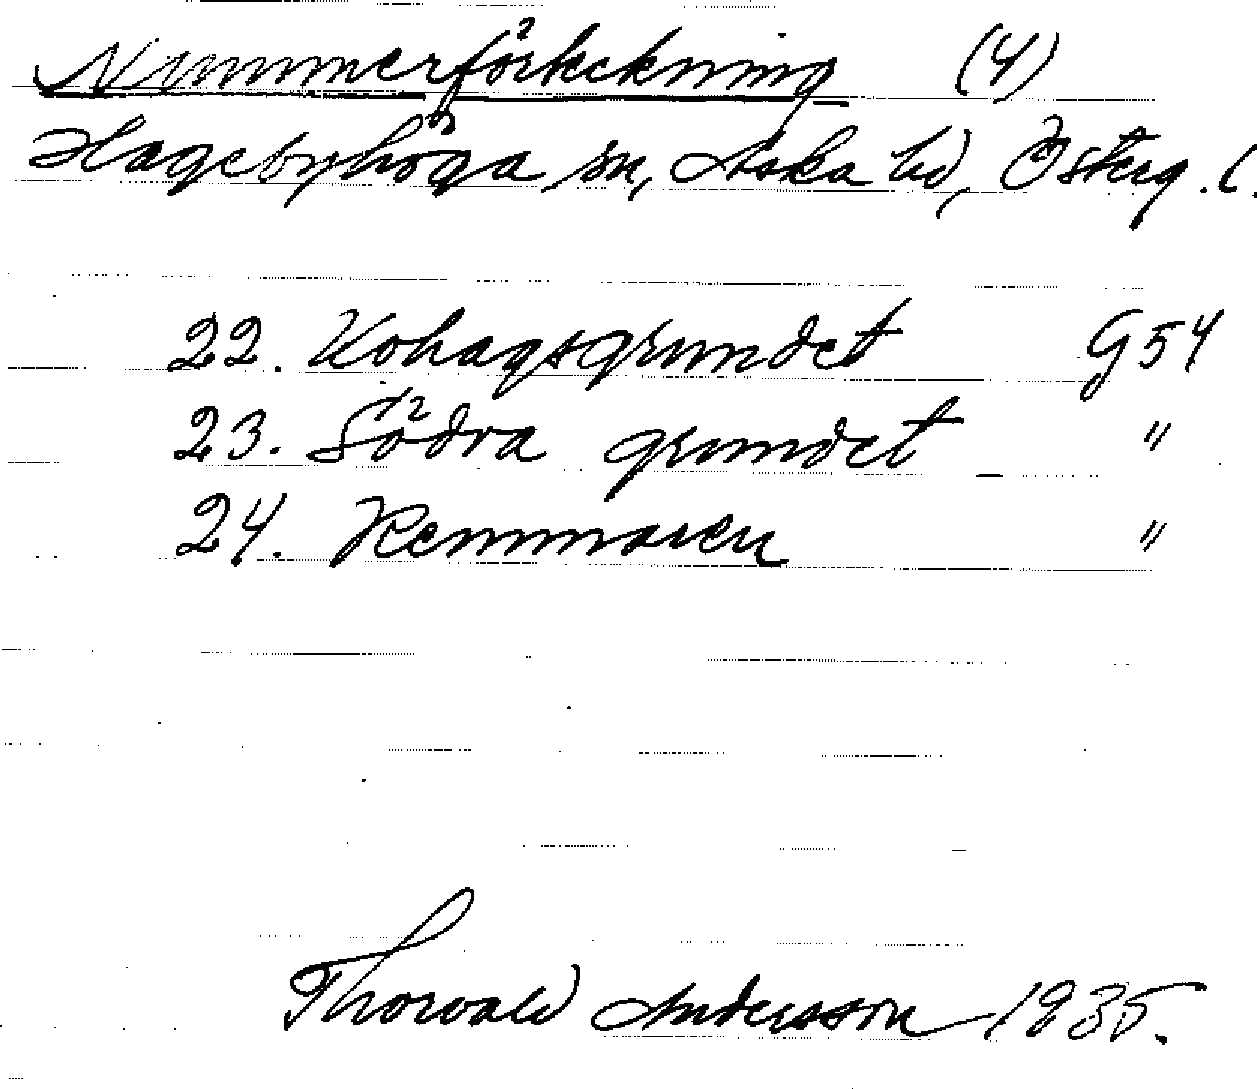 Nummerförteckning (4)
Hagebyhöga sn, Aska hd, Österg. l.
22. Kohagsgrundet G54
23. Södra grundet "
24. Remmaren "
Thorvald Andersson 1935.